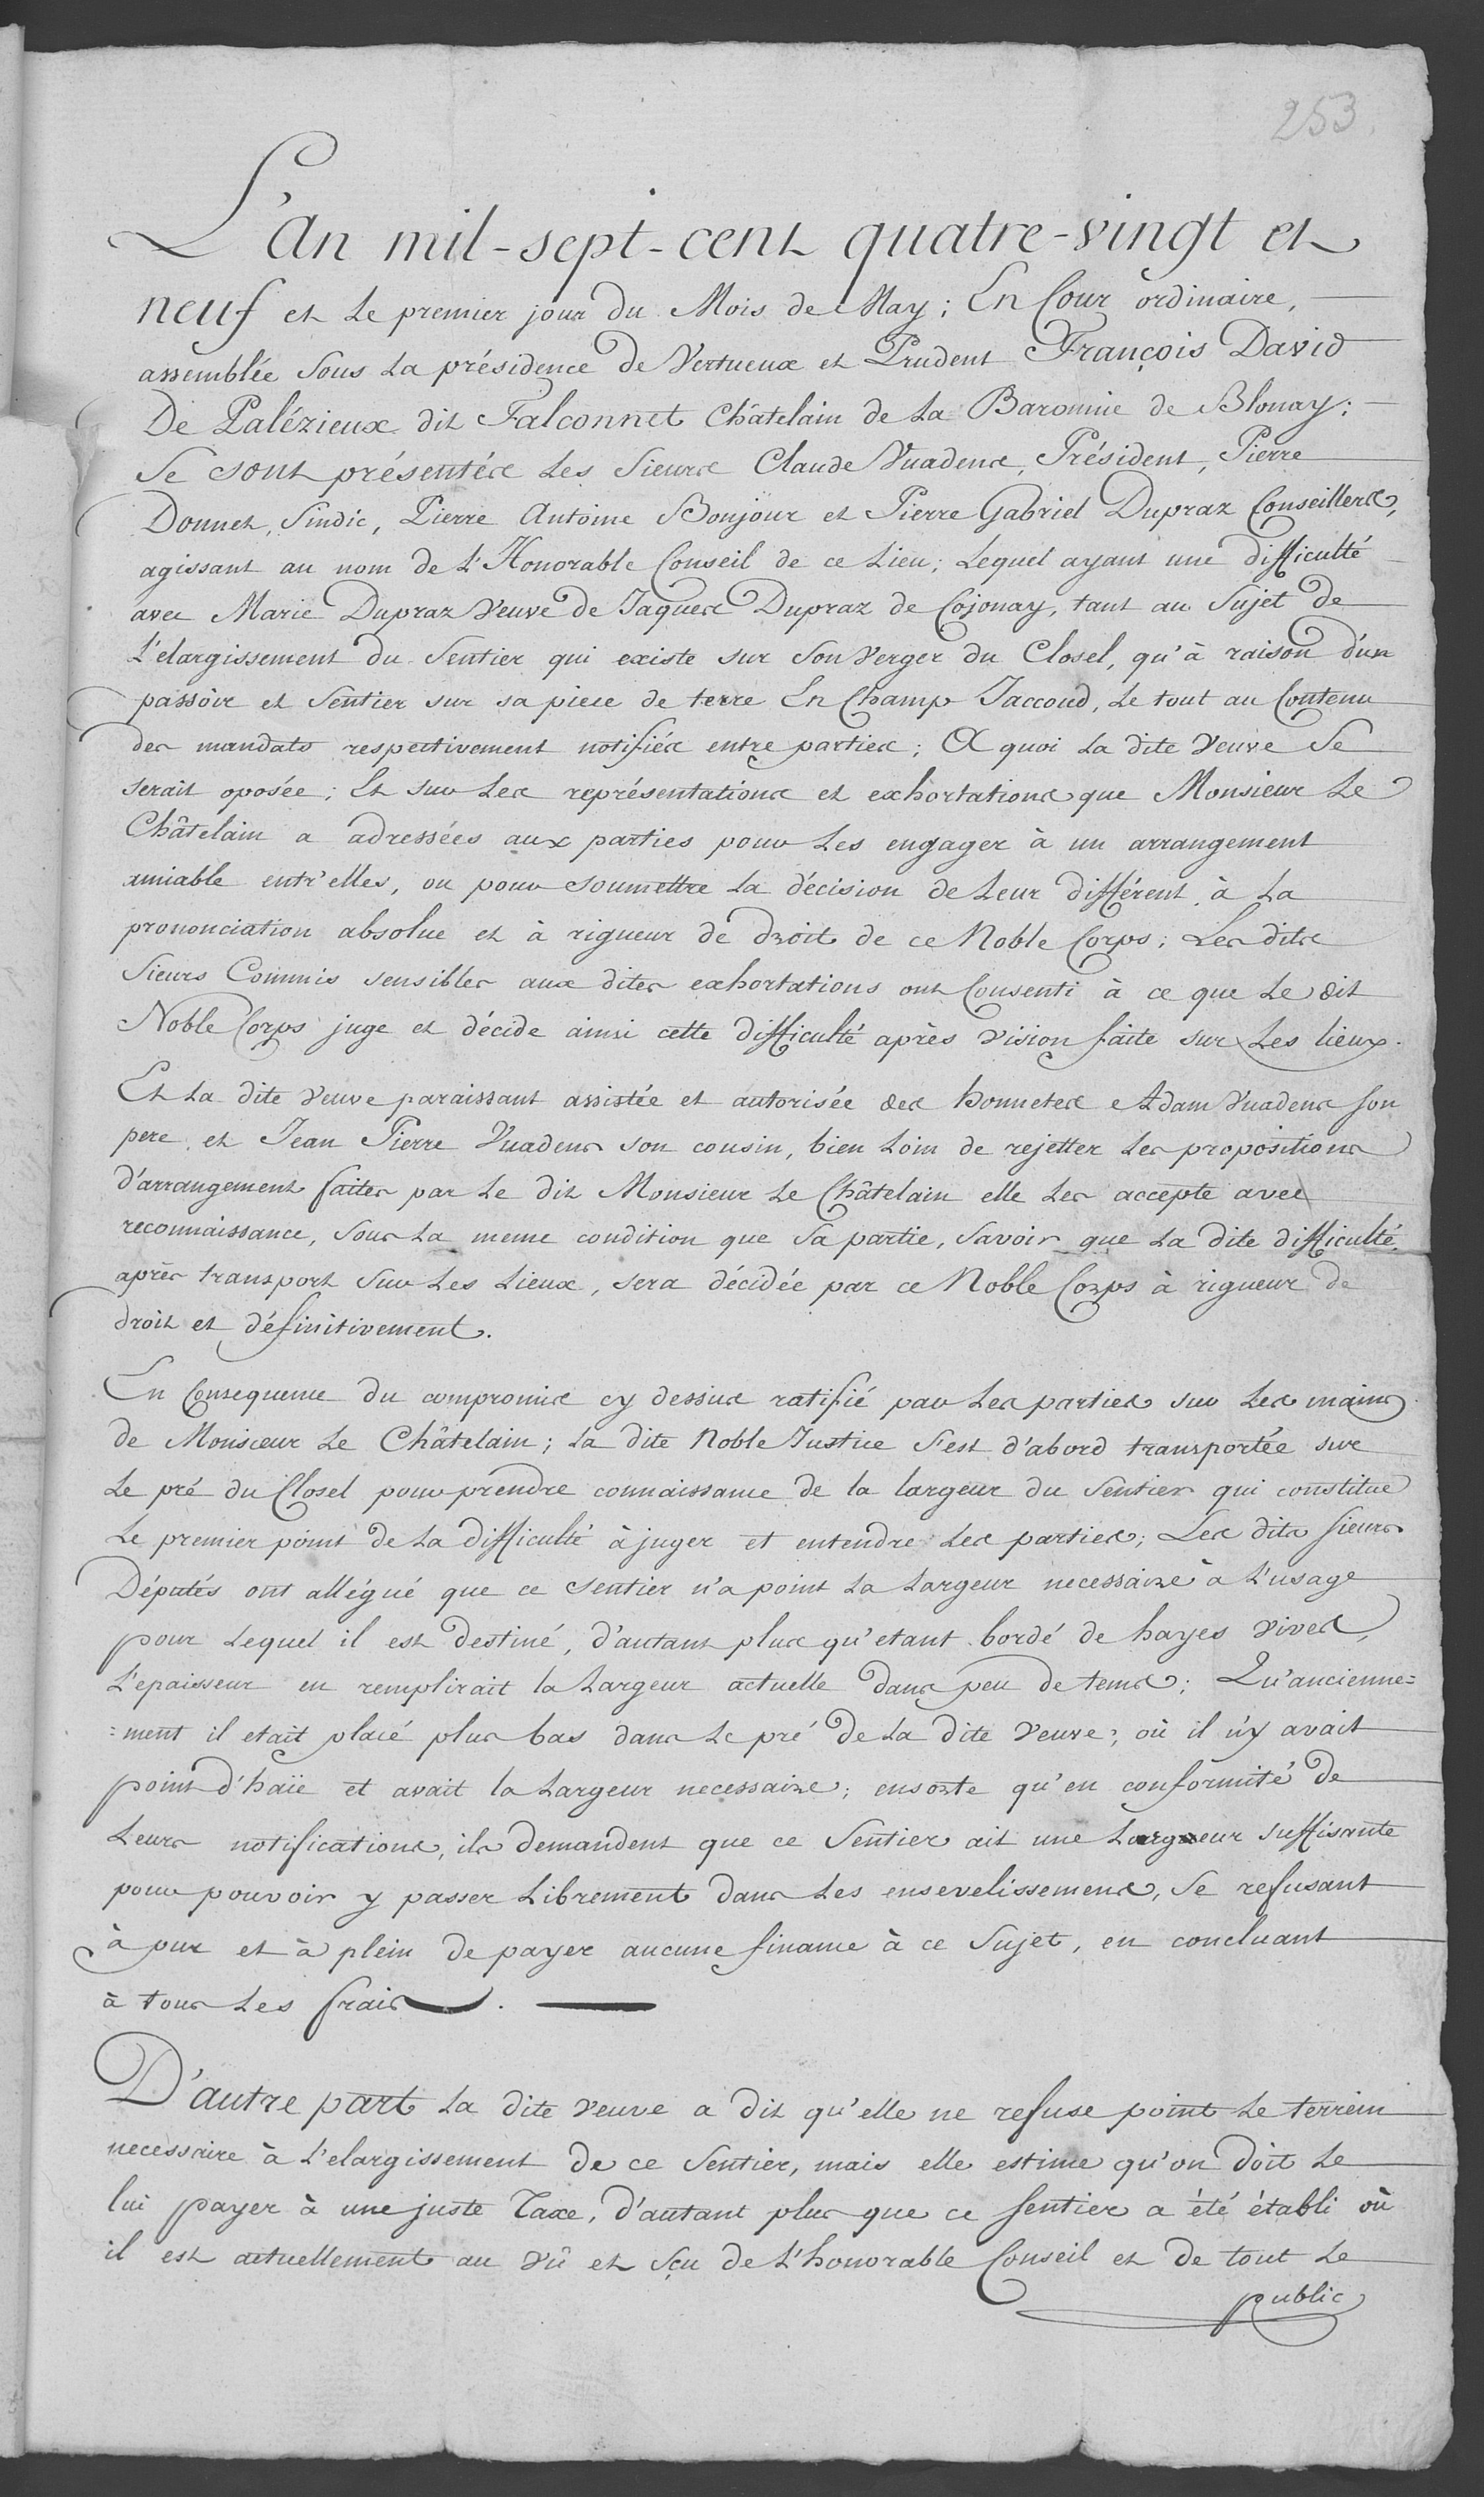 253.
L'An mil-sept-cent quatre-vingt et
neuf et le premier jour du Mois de May; En Cour ordinaire,
assemblée sous la présidence de Vertueux et Prudent François David
De Palézieux dit Falconnet Châtelain de la Baronnie de Blonay;
Se sont présentés les Sieurs Claude Vuadens, Président, Pierre
Donnet, Sindic, Pierre Antoine Bonjour et Pierre Gabriel Dupraz Conseillers,
agissant au nom de l'Honorable Conseil de ce Lieu; Lequel ayant une difficulté
avec Marie Dupraz Veuve de Jaques Dupraz de Cojonay, tant au Sujet de
l'elargissement du Sentier qui existe sur son Verger du Closel, qu'à raison d'un
passoir et Sentier sur sa piece de terre En Champ Jaccoud, le tout au Contenu
des mandats respectivement notifiés entre parties; A quoi la dite Veuve Se
serait oposée; Et sur les représentations et exhortations que Monsieur Le
Châtelain a adressées aux parties pour les engager à un arrangement
amiable entr'elles, ou pour soumettre la décision de leur différent à la
prononciation absolue et à rigueur de droit de ce Noble Corps; Les dits
Sieurs Commis sensibles aux dites exhortations ont Consenti à ce que le dit
Noble Corps juge et décide ainsi cette difficulté après vision faite sur les lieux.
Et la dite veuve paraissant assistée et autorisée des honnetes Adam Vuadens son
pere, et Jean Pierre Vuadens son cousin, bien loin de rejetter les propositions
d'arrangement faites par le dit Monsieur le Châtelain elle les accepte avec
reconnaissance, sous la meme condition que sa partie, savoir que la dite difficulté,
après transport sur les lieux, sera décidée par ce Noble Corps à rigueur de
droit et définitivement.
En Consequence du compromis cy dessus ratifié par les parties sur les mains
de Monsieur le Châtelain; la dite Noble Justice s'est d'abord transportée sur
le pré du Closel pour prendre connaissance de la largeur du Sentier qui constitue
le premier point de la difficulté à juger et entendre les parties; Les dits sieurs
Députés ont allégué que ce sentier n'a point la largeur necessaire à l'usage
pour lequel il est destiné, d'autant plus qu'etant bordé de hayes vives,
l'epaisseur en remplirait la largeur actuelle dans peu de tems; Qu'ancienne=
=ment il etait placé plus bas dans le pré de la dite Veuve; où il n'y avait
point d'haïe et avait la largeur necessaire; ensorte qu'en conformité de
leurs notifications, ils demandent que ce Sentier ait une largeur suffisante
pour pouvoir y passer librement dans les ensevelissemens, se refusant
à pur et à plein de payer aucune finance à ce Sujet, en concluant
à tous les frais.
D'autre part la dite veuve a dit qu'elle ne refuse point le terrein
necessaire à l'elargissement de ce Sentier, mais elle estime qu'on doit le
lui payer à une juste Taxe, d'autant plus que ce sentier a été établi où
il est actuellement au vû et sçu de l'honorable Conseil et de tout le
public